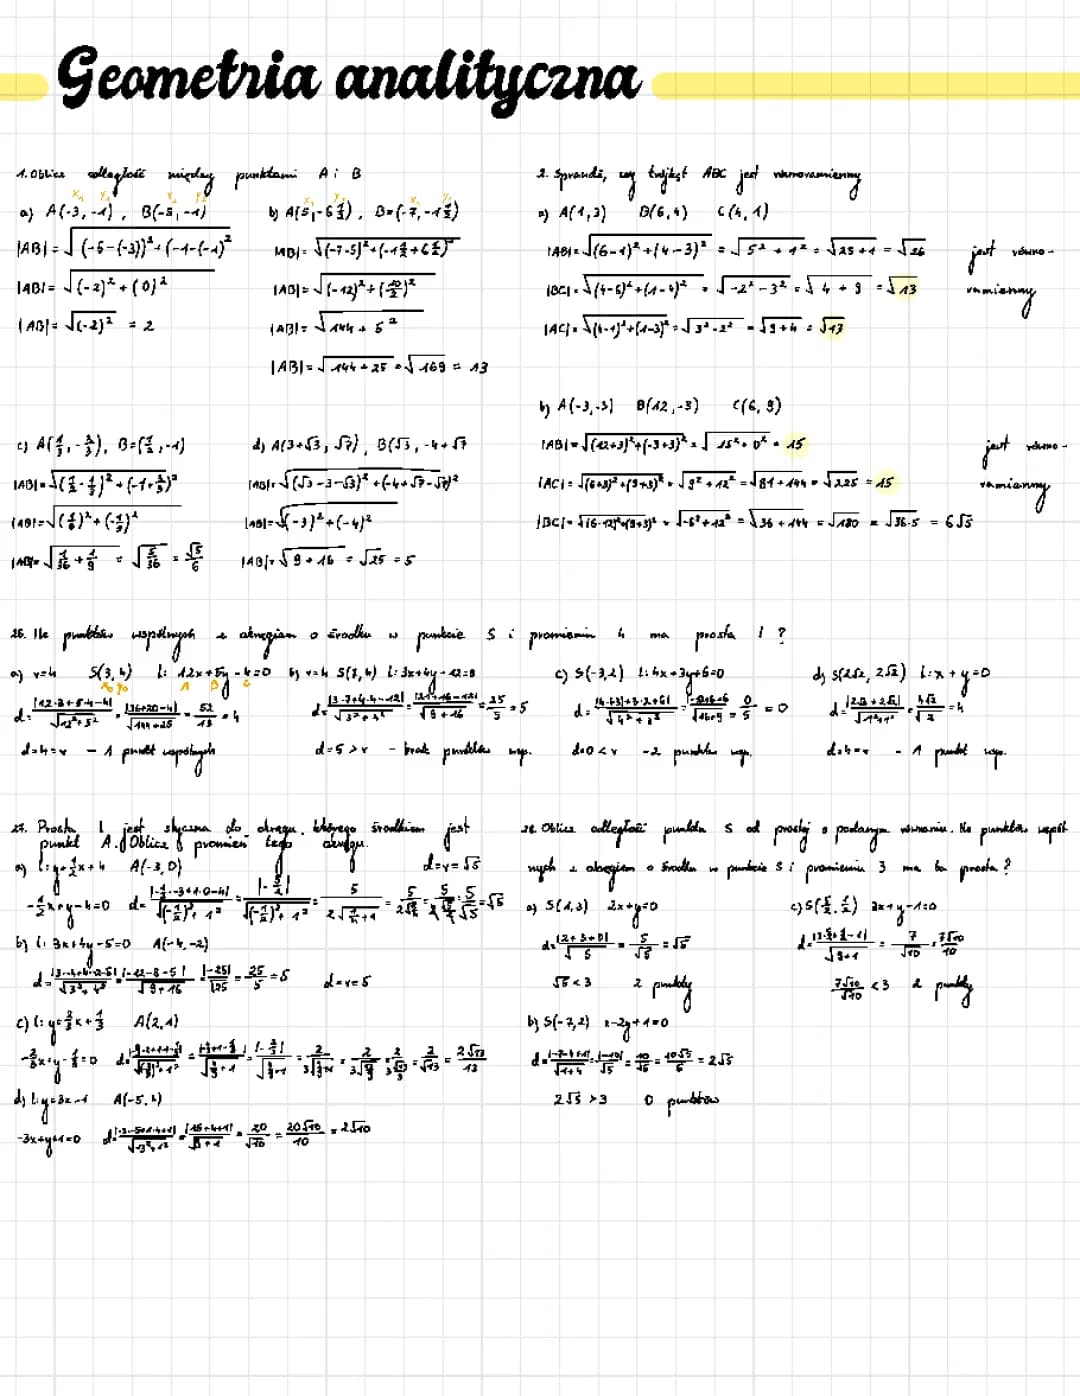 Geometria analityczna
1. Oblicz odległość między punktami A i B
a) A(-3, -1), B(-5, -1)
|AB| = √(-5-(-3))²+(-1-(-1)²
|AB| = √(-2)² + (0)²
|AB| = √(-2)² = 2
b) A(5,-6½), B=(-7,-1½)
|AB| = √(-7-5)²+(-1½+6½)²
|AB| = √(-12)²+(10/2)²
|AB| = √144 + 5²
|AB| = √144+25 = √169 = 13
c) A(⅓, -⅔), B=(½, -1)
|AB| = √(½-⅓)²+(-1+⅔)²
|AB| = √(⅙)²+(-⅓)²
|AB| = √1/36 + 1/9 = √5/36 = √5/6
d) A(3+√3, √7), B(√3, -4+√7
|AB| = √(√3-3-√3)²+(-4+√7-√7)²
|AB| = √(-3)²+(-4)²
|AB| = √9+16 = √25 = 5
2. Sprawdź, czy trójkąt ABC jest równoramienny
a) A(1,3) B(6,4) C(4,1)
|AB| = √(6-1)²+(4-3)² = √5²+1² = √25+1 = √26
|BC| = √(4-6)²+(1-4)² = √-2²-3² = √4+9 = √13
|AC| = √(4-1)²+(1-3)² = √3²-2² = √9+4 = √13
jest równo-
ramienny
b) A(-3,-3) B(12,-3) C(6,9)
|AB| = √(12+3)²+(-3+3)² = √15²+0² = 15
|AC| = √(6+3)²+(9+3)² = √9²+12² = √81+144 = √225 = 15
|BC| = √(6-12)²+(9+3)² = √-6²+12² = √36+144 = √180 = √36·5 = 6√5
jest równo-
ramienny
26. Ile punktów wspólnych z okręgiem o środku w punkcie S i promieniu 4 ma prosta l ?
a) r=4 S(3,4) l: 12x+5y-4=0
d = |12·3+5·4-4|/√12²+5² = |36+20-4|/√144+25 = 52/13 = 4
d=4=r - 1 punkt wspólnych
b) r=4 S(7,4) l: 3x+4y-12=0
d = |3·7+4·4-12|/√3²+4² = |21+16-12|/√9+16 = 25/5 = 5
d=5>r - brak punktów wsp.
c) S(-3,2) l: 4x+3y+6=0
d = |4·(-3)+3·2+6|/√4²+3² = |-12+6+6|/√16+9 = 0/5 = 0
d=0<r - 2 punktów wsp.
d) S(2√2, 2√2) l: x+y=0
d = |2√2+2√2|/√1²+1² = 4√2/√2 = 4
d=4=r - 1 punkt wsp.
27. Prosta l jest styczna do okręgu, którego środkiem jest
punkt A. Oblicz promień tego okręgu.
a) l: y=½x+4 A(-3,0)
d=r=√5
-½x+y-4=0 d= |-½·-3+1·0-4|/√(-½)²+1² = |-5/2|/√(-½)²+1² = 5/2√¼+1 = √5
b) l: 3x+4y-5=0 A(-4,-2)
d = |3·-4+4·-2-5|/√3²+4² = |-12-8-5|/√9+16 = |-25|/√25 = 25/5 = 5 d=r=5
c) l: y=⅔x+⅓ A(2,1)
-⅔x+y-⅓=0 d= = 2/√13 = 2√13/13
d) l: y=3x-1 A(-5,4)
-3x+y+1=0 d= |-3·-5+1·4+1|/√-3²+1² = |15+4+1|/√9+1 = 20/√10 = 20√10/10 = 2√10
28. Oblicz odległość punktu S od prostej o podanym równaniu. Ile punktów wspól-
nych z okręgiem o środku w punkcie S i promieniu 3 ma ta prosta?
a) S(1,3) 2x+y=0
d = |2+3+0|/√5 = 5/√5 = √5
√5<3 2 punkty
b) S(-7,2) x-2y+1=0
d = |-7-4+1|/√1+4 = |-10|/√5 = 10/√5 = 10√5/5 = 2√5
2√5>3 0 punktów